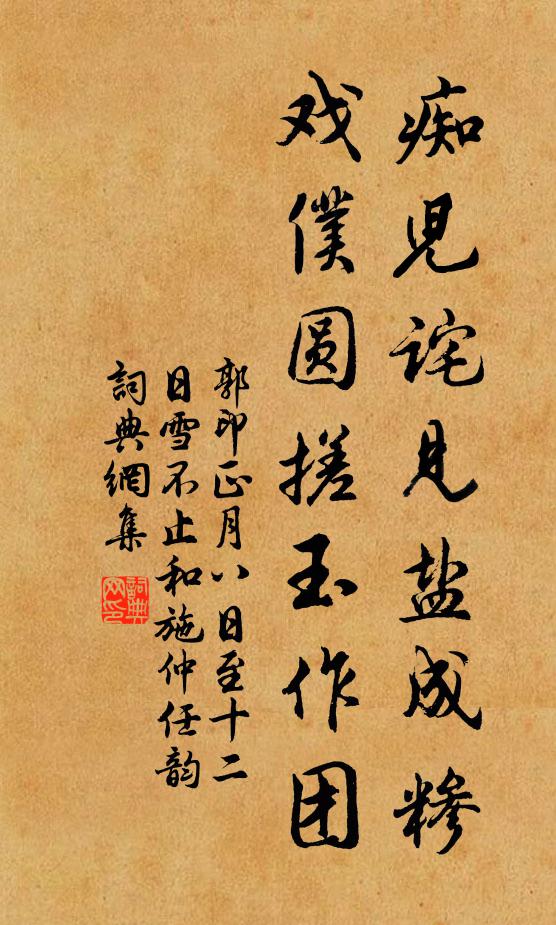 痴児詫见盐成糁
戏僕圆搓玉作团
郭印正月八日至十二
日雪不止和施仲任韵
詞典網集
詞典網印